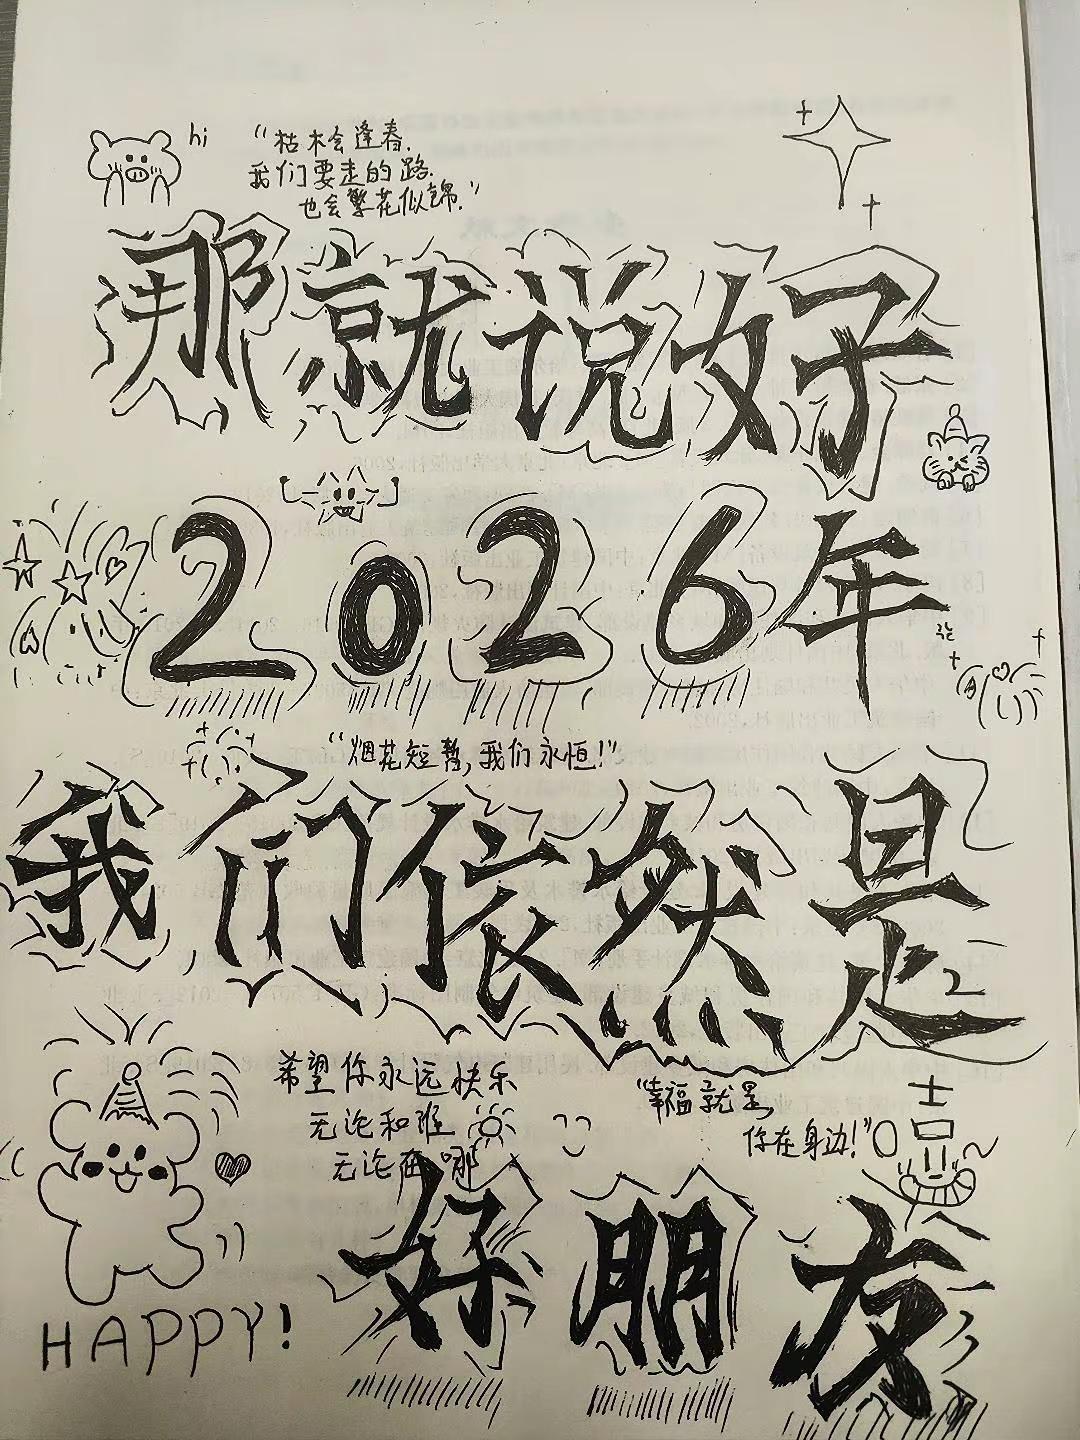 hi
“枯木会逢春.
我们要走的路.
也会繁花似锦.”
那就说好
2026年
“烟花短暂,我们永恒!”
我们依然是
希望你永远快乐
无论和谁
无论在哪
“幸福就是,
你在身边!”
好朋友
HAPPY!